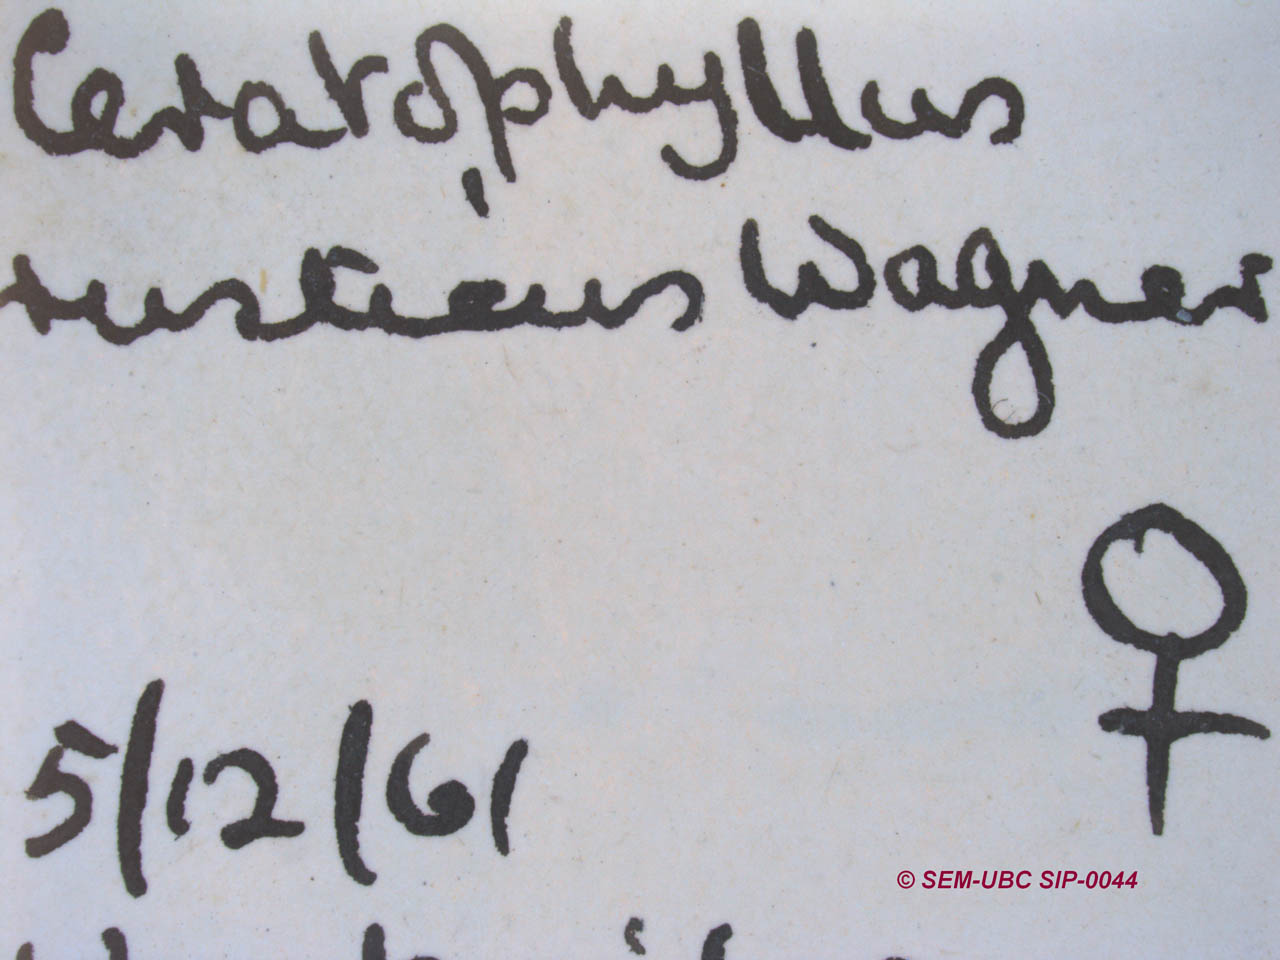 Ceratophyllus
rusticus Wagner
♀
5/12/61
© SEM-UBC SIP-0044